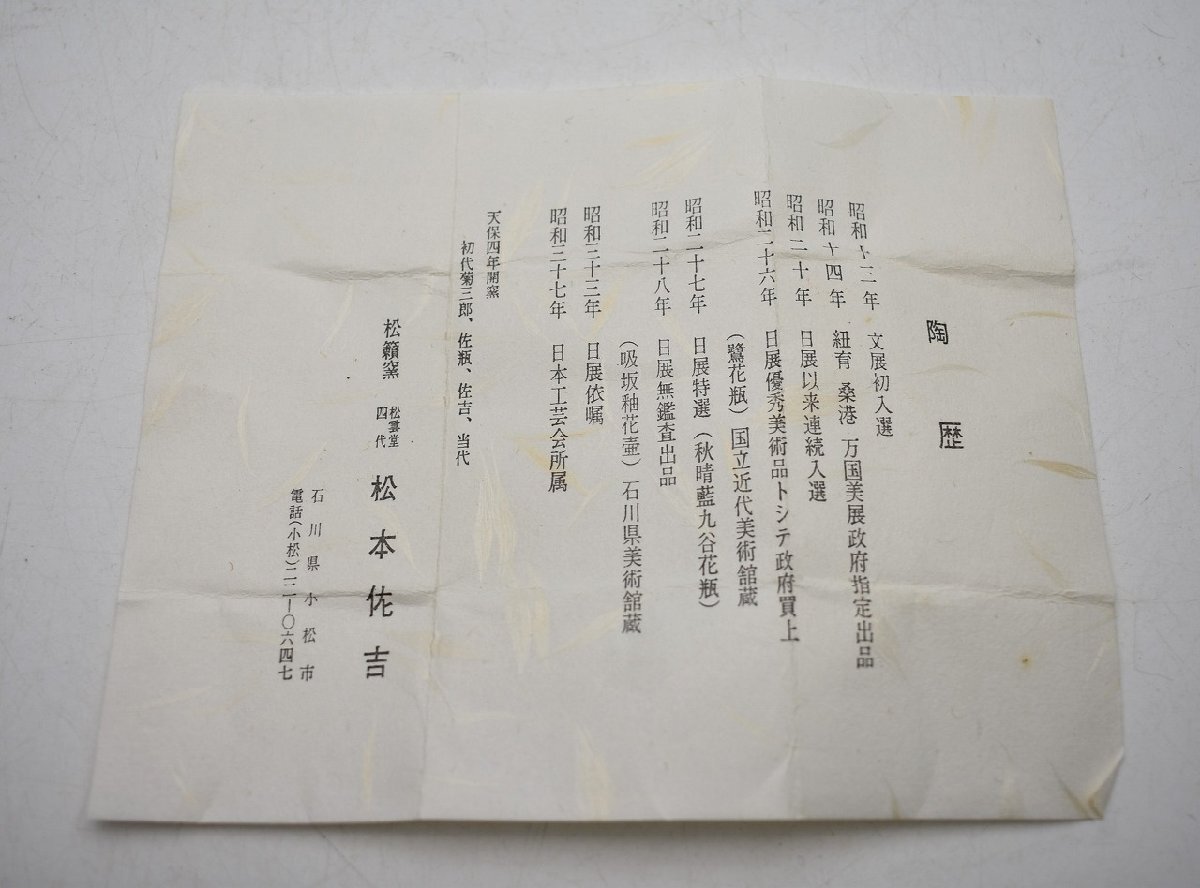 陶歴
昭和十二年 文展初入選
昭和十四年 紐育 桑港 万国美展政府指定出品
昭和二十年 日展以来連続入選
昭和二十六年 日展優秀美術品トシテ政府買上
(鷺花瓶)国立近代美術館蔵
昭和二十七年 日展特選(秋晴藍九谷花瓶)
昭和二十八年 日展無鑑査出品
(吸坂釉花壷)石川県美術館蔵
昭和三十三年 日展依嘱
昭和三十七年 日本工芸会所属
天保四年開窯
初代菊三郎、佐瓶、佐吉、当代
松籟窯 松雲堂四代 松本佐吉
石川県小松市
電話(小松)二二―〇六四七